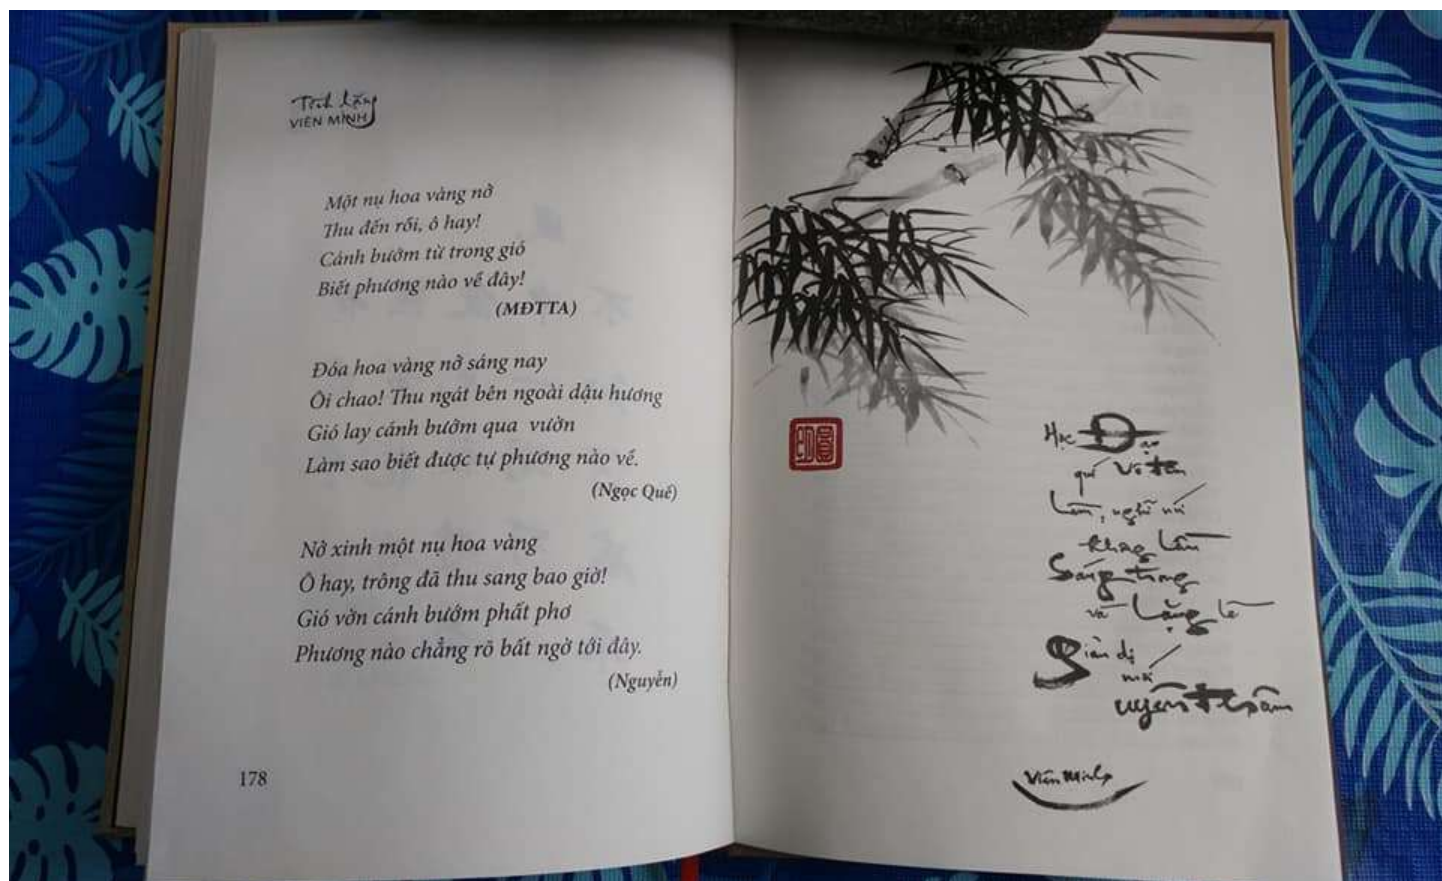 Tĩnh lặng
VIÊN MINH
Một nụ hoa vàng nở
Thu đến rồi, ô hay!
Cánh bướm từ trong gió
Biết phương nào về đây!
(MĐTTA)
Đóa hoa vàng nở sáng nay
Ôi chao! Thu ngát bên ngoài dậu hương
Gió lay cánh bướm qua vườn
Làm sao biết được tự phương nào về.
(Ngọc Quế)
Nở xinh một nụ hoa vàng
Ô hay, trông đã thu sang bao giờ!
Gió vờn cánh bướm phất phơ
Phương nào chẳng rõ bất ngờ tới đây.
(Nguyễn)
178
Học Đạo
quí vô tâm
Làm, nghĩ, nói
không lầm
Sáng trong
và lặng lẽ
Giản dị
mới
uyên thâm
Viên Minh